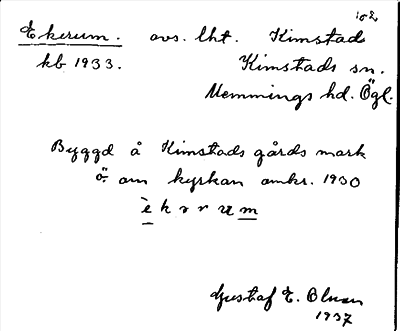 102
Ekerum. avs. lht. Kimstad
kb 1933. Kimstads sn.
Memmings hd. Ögl.
Byggd å Kimstads gårds mark
ö. om kyrkan omkr. 1930
è k r r u m
Gustaf E. Olsson
1937